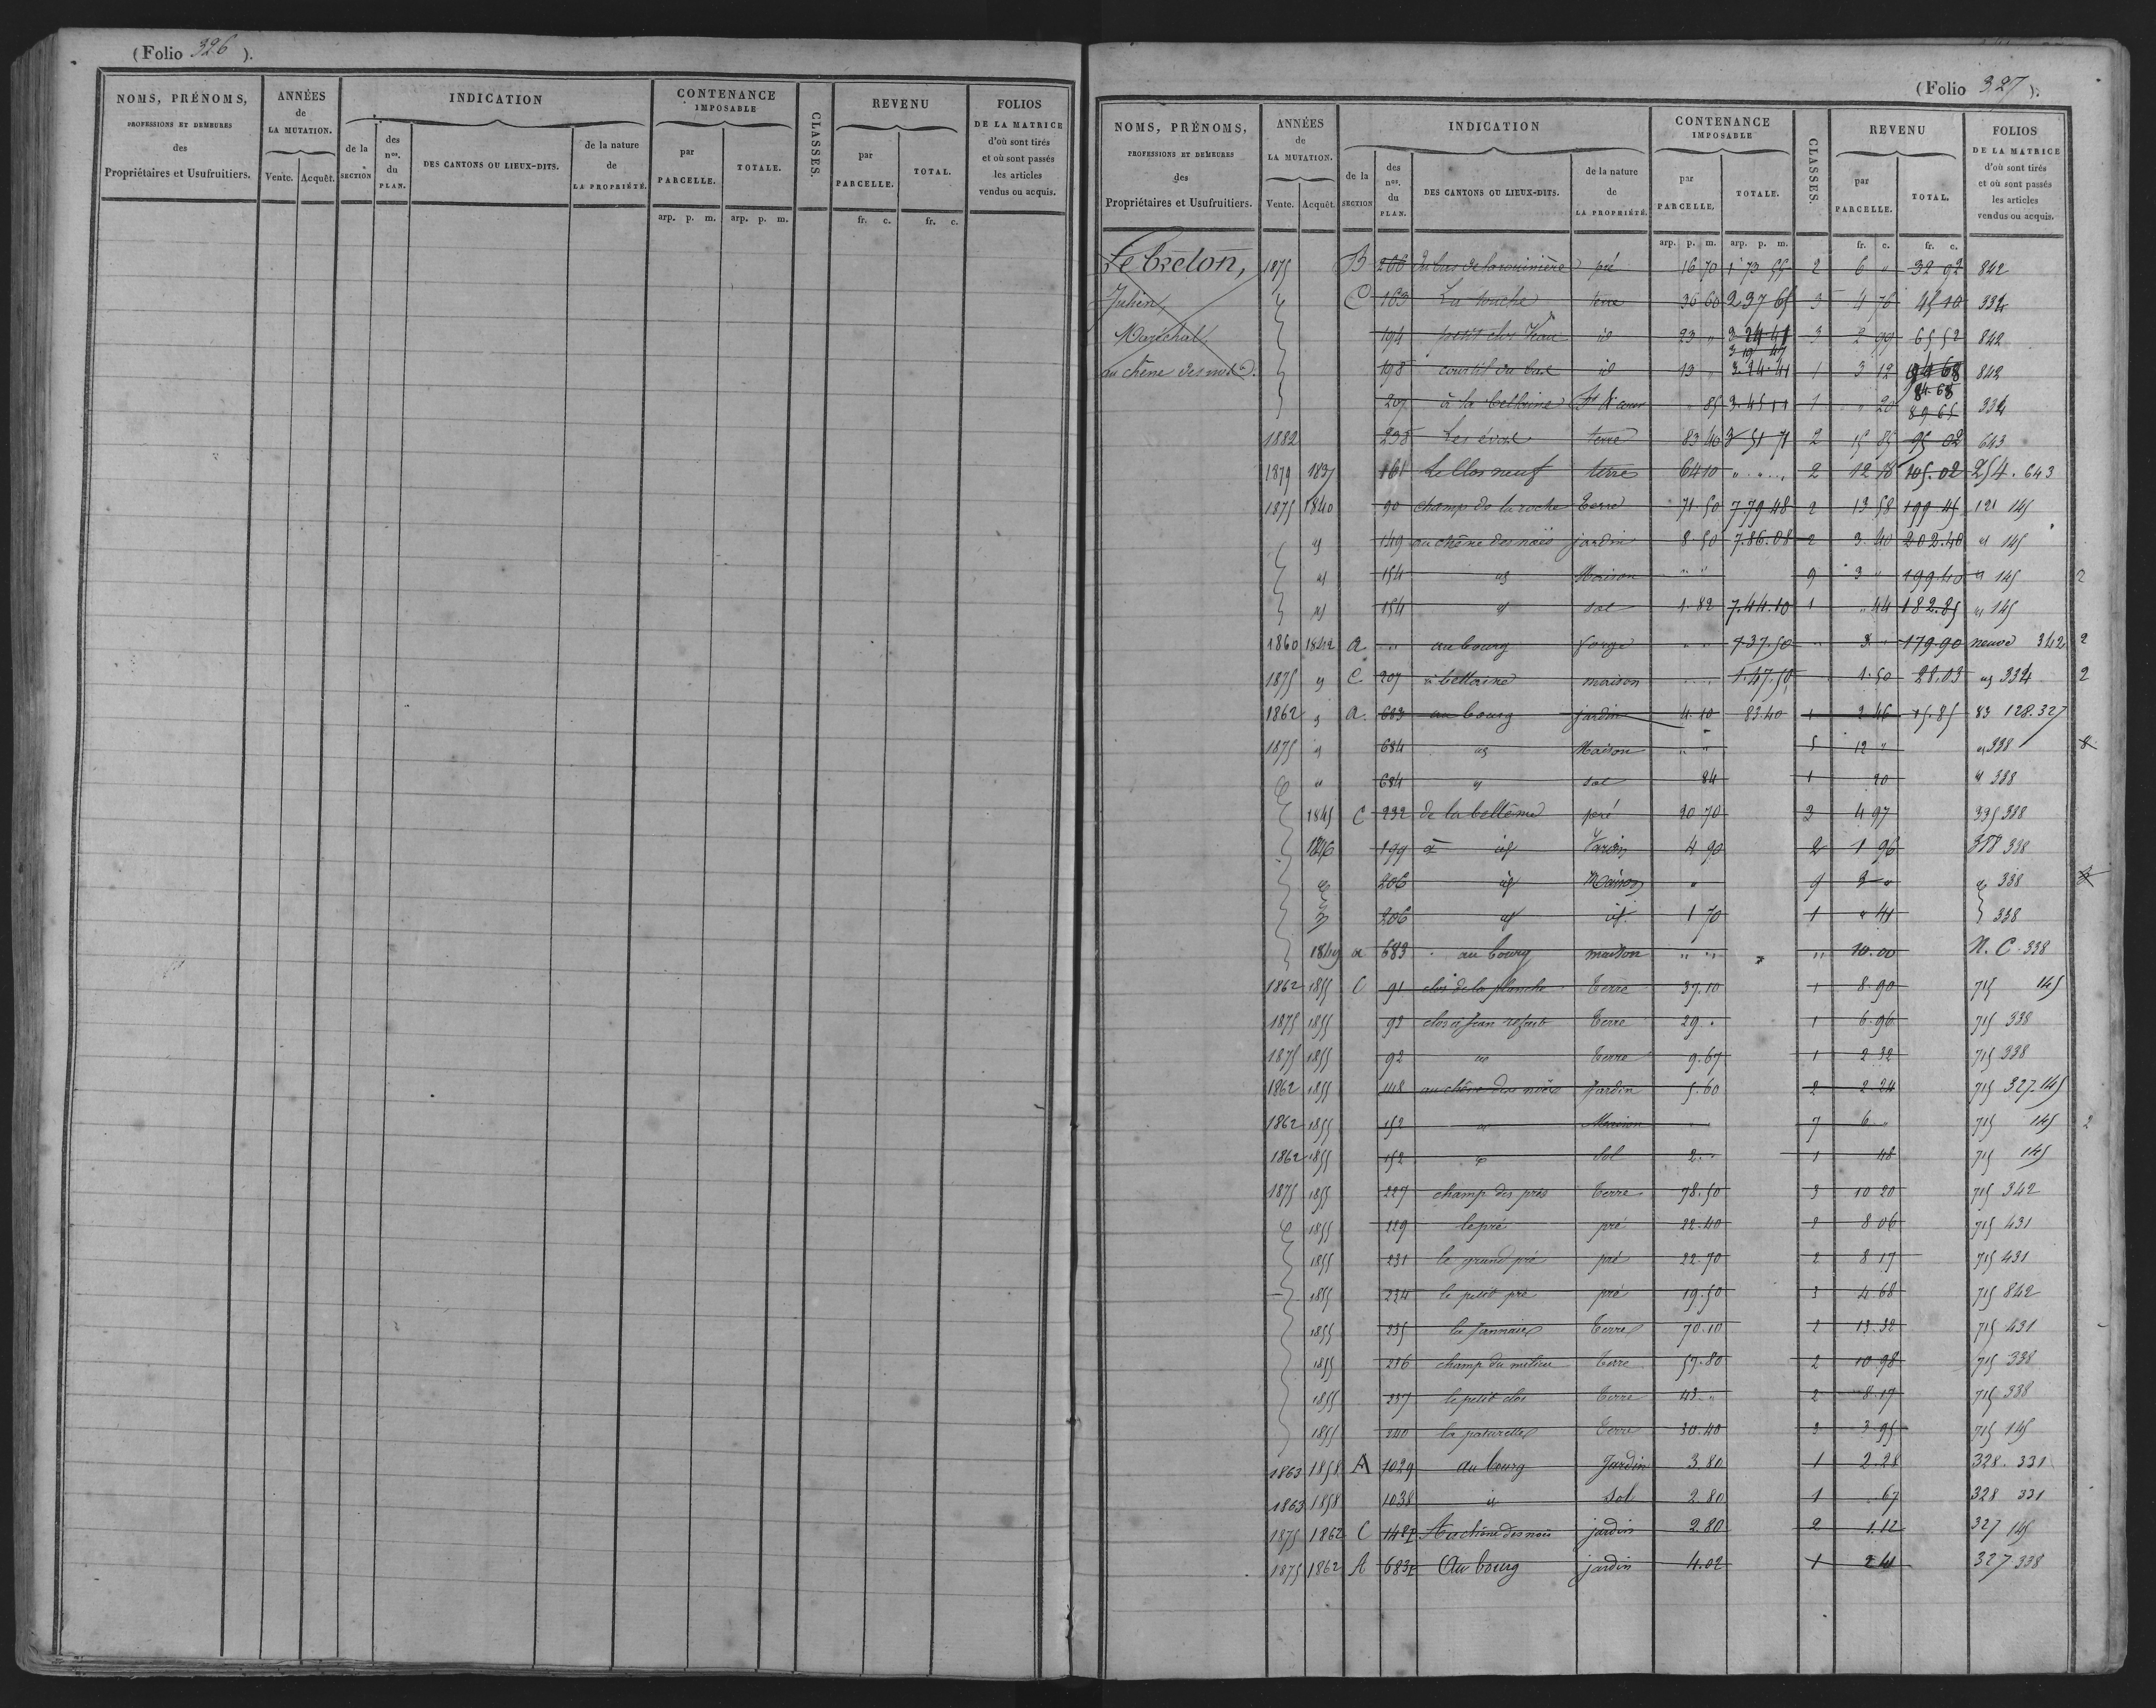 (Folio 326 ).
NOMS, PRÉNOMS,
PROFESSIONS ET DEMEURES
des
Propriétaires et Usufruitiers.
ANNÉES
de
LA MUTATION.
Vente. Acquêt.
INDICATION
de la
SECTION
des
nos.
du
PLAN.
DES CANTONS OU LIEUX-DITS.
de la nature
de
LA PROPRIÉTÉ.
CONTENANCE
IMPOSABLE
par
PARCELLE.
TOTALE.
arp. p. m. arp. p. m.
CLASSES.
REVENU
par
PARCELLE.
TOTAL.
fr. c. fr. c.
FOLIOS
DE LA MATRICE
d'où sont tirés
et où sont passés
les articles
vendus ou acquis.
(Folio 327 ).
NOMS, PRÉNOMS,
PROFESSIONS ET DEMEURES
des
Propriétaires et Usufruitiers.
ANNÉES
de
LA MUTATION.
Vente. Acquêt.
INDICATION
de la
SECTION
des
nos.
du
PLAN.
DES CANTONS OU LIEUX-DITS.
de la nature
de
LA PROPRIÉTÉ.
CONTENANCE
IMPOSABLE
par
PARCELLE.
TOTALE.
arp. p. m. arp. p. m.
CLASSES.
REVENU
par
PARCELLE.
TOTAL.
fr. c. fr. c.
FOLIOS
DE LA MATRICE
d'où sont tirés
et où sont passés
les articles
vendus ou acquis.
Lebreton, 1875 B 266 pré 16 70 1 73 55 2 6 " 32 92 842
Julien, C 163 La touche terre 36 60 2 37 65 3 4 76 45 10 334
Maréchal, 194 petit clos id 23 " 3 24 41 3 2 99 65 52 842
3 19 47
au chêne des noës. 198 courtil du bas id 13 " 3.24.41 1 3 12 94 68 842
84.68
207 à la " 85 3.45 11 1 " 20 89 65 334
1882 238 terre 83 40 3 51 71 2 15 85 95 02 643
1879 1837 161 Le Clos neuf terre 64 10 " " " 2 12 18 105.02 254. 643
1875 1840 90 champ de la roche Terre 71.50 7 79 48 2 13 58 199.45 121 145
id 149 au chêne des noës jardin 8.50 7.86.08 2 3.40 202.40 id 145
id 154 id Maison " " 9 3 " 199.40 id 145 2
id 154 id sol 1.82 7.44.10 1 " 44 182.85 id 145
1860 1842 a " au bourg forge " " 7 37.50 " 3 " 179.90 neuve 342 2
1875 id C 207 maison 1.47.50 1.50 28.03 id 334 2
1862 id a. 683 au bourg jardin 4.10 83.40 1 2 46 15.85 83 128.327
1875 id 684 id Maison " " 5 12 " id 338 8
id 684 id sol 84 1 20 id 338
1845 C 232 de la pré 20 70 3 4 97 335 338
1846 199 à id Jardin 4 90 2 1 96 338
206 id Maison " 9 3 " 338
206 id id 1 70 1 " 41 338
1849 a 683 au bourg maison " " " 10.00 N. C. 338
1862 1855 C 91 clos de la planche Terre 37.10 1 8.90 715 145
1875 1855 92 clos à Jean Terre 29 . 1 6.96 715 338
1875 1855 92 id Terre 9.67 1 2 32 715 338
1862 1855 148 au chêne des noës Jardin 5.60 2 2 24 715 327.145
1862 1855 152 id Maison " 7 6 " 715 145 2
1862 1855 152 id Sol 2 " 1 48 715 145
1875 1855 227 champ des prés Terre 78.50 3 10 20 715 342
1855 229 le pré pré 22.40 2 8 06 715 431
1855 231 le grand pré pré 22.70 2 8 17 715 431
1855 234 le petit pré pré 19.50 3 4.68 715 842
1855 235 la Jannaie Terre 70.10 2 13.32 715 431
1855 236 champ du milieu Terre 57.80 2 10.98 715 338
1855 237 le petit clos Terre 43 " 2 8.17 715 338
1855 240 la paturelle Terre 30.40 3 3.95 715 145
1863 1858 A 1029 au bourg Jardin 3.80 1 2.28 328. 331
1863 1858 1038 id Sol 2.80 1 .67 328 331
1875 1862 C 148 Au chêne des noës jardin 2 80 2 1.12 327 145
1875 1862 A 683 Au bourg jardin 4.02 1 2 41 327 338